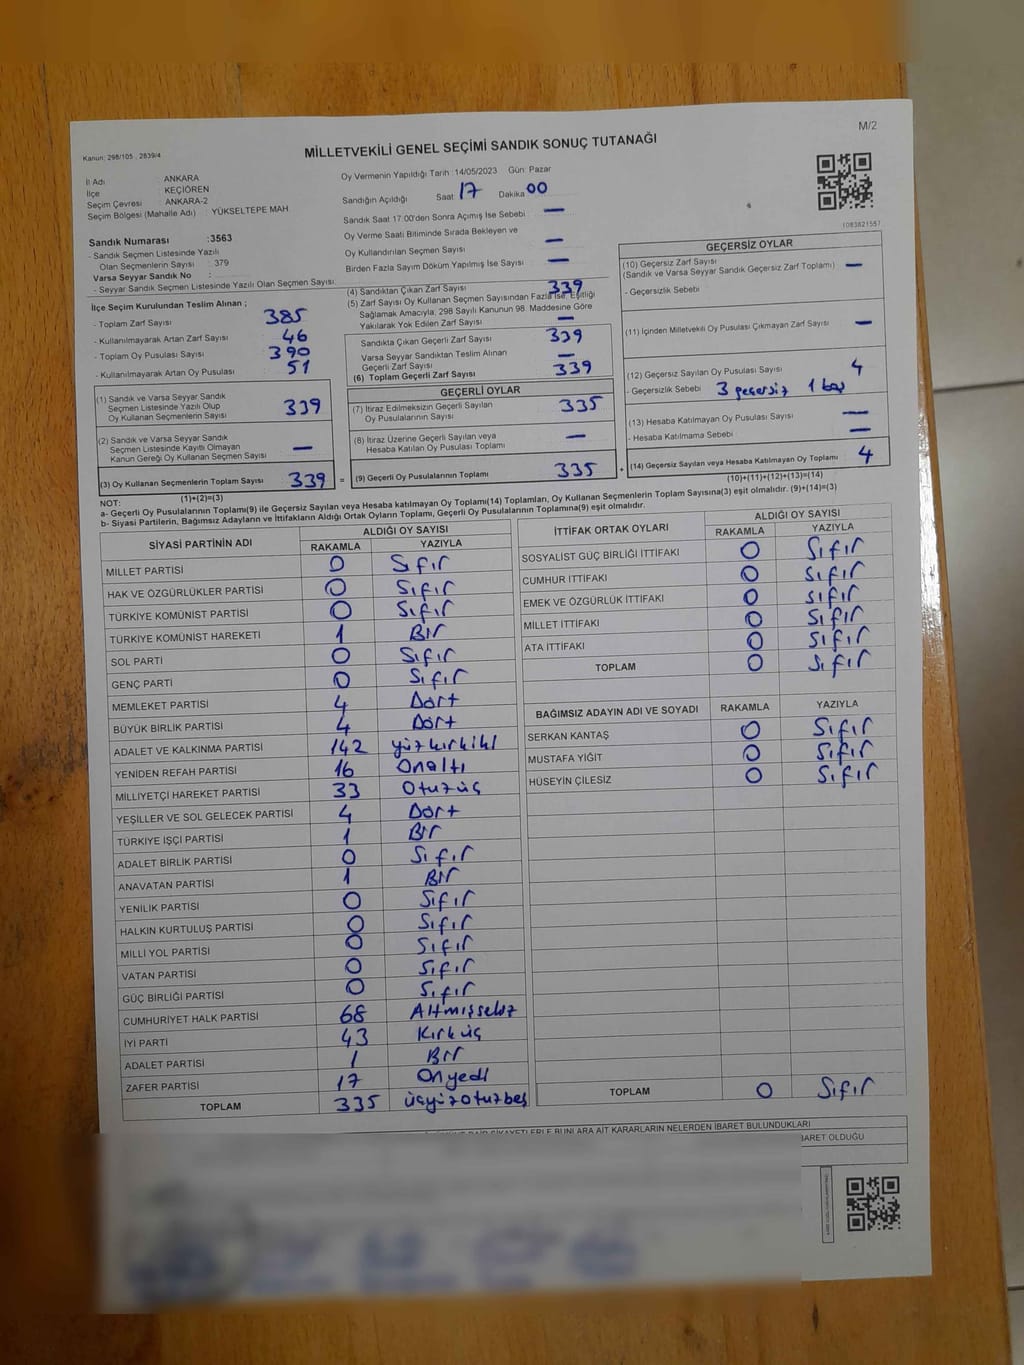 M/2
Kanun: 298/105 , 2839/4
MİLLETVEKİLİ GENEL SEÇİMİ SANDIK SONUÇ TUTANAĞI
İl Adı : ANKARA
İlçe : KEÇİÖREN
Seçim Çevresi : ANKARA-2
Seçim Bölgesi (Mahalle Adı) : YÜKSELTEPE MAH
Sandık Numarası :3563
- Sandık Seçmen Listesinde Yazılı
Olan Seçmenlerin Sayısı : 379
Varsa Seyyar Sandık No :
- Seyyar Sandık Seçmen Listesinde Yazılı Olan Seçmen Sayısı:
Oy Vermenin Yapıldığı Tarih :14/05/2023 Gün: Pazar
Sandığın Açıldığı Saat 17 Dakika 00
Sandık Saat 17:00'den Sonra Açımış İse Sebebi : —
Oy Verme Saati Bitiminde Sırada Bekleyen ve
Oy Kullandırılan Seçmen Sayısı : —
Birden Fazla Sayım Döküm Yapılmış İse Sayısı : —
(083821557
İlçe Seçim Kurulundan Teslim Alınan ;
- Toplam Zarf Sayısı 385
- Kullanılmayarak Artan Zarf Sayısı 46
- Toplam Oy Pusulası Sayısı 390
- Kullanılmayarak Artan Oy Pusulası 51
(1) Sandık ve Varsa Seyyar Sandık
Seçmen Listesinde Yazılı Olup
Oy Kullanan Seçmenlerin Sayısı 339
(2) Sandık ve Varsa Seyyar Sandık
Seçmen Listesinde Kayıtlı Olmayan
Kanun Gereği Oy Kullanan Seçmen Sayısı —
(3) Oy Kullanan Seçmenlerin Toplam Sayısı 339 =
(1)+(2)=(3)
(4) Sandıktan Çıkan Zarf Sayısı 339
(5) Zarf Sayısı Oy Kullanan Seçmen Sayısından Fazla İse, Eşitliği
Sağlamak Amacıyla, 298 Sayılı Kanunun 98. Maddesine Göre
Yakılarak Yok Edilen Zarf Sayısı —
Sandıkta Çıkan Geçerli Zarf Sayısı 339
Varsa Seyyar Sandıktan Teslim Alınan
Geçerli Zarf Sayısı —
(6) Toplam Geçerli Zarf Sayısı 339
GEÇERLİ OYLAR
(7) İtiraz Edilmeksizin Geçerli Sayılan
Oy Pusulalarının Sayısı 335
(8) İtiraz Üzerine Geçerli Sayılan veya
Hesaba Katılan Oy Pusulası Toplamı —
(9) Geçerli Oy Pusulalarının Toplamı 335 +
GEÇERSİZ OYLAR
(10) Geçersiz Zarf Sayısı
(Sandık ve Varsa Seyyar Sandık Geçersiz Zarf Toplamı) —
- Geçersizlik Sebebi
(11) İçinden Milletvekili Oy Pusulası Çıkmayan Zarf Sayısı —
(12) Geçersiz Sayılan Oy Pusulası Sayısı 4
- Geçersizlik Sebebi 3 geçersiz 1 boş
(13) Hesaba Katılmayan Oy Pusulası Sayısı —
- Hesaba Katılmama Sebebi : —
(14) Geçersiz Sayılan veya Hesaba Katılmayan Oy Toplamı 4
(10)+(11)+(12)+(13)=(14)
NOT:
a- Geçerli Oy Pusulalarının Toplamı(9) ile Geçersiz Sayılan veya Hesaba katılmayan Oy Toplamı(14) Toplamları, Oy Kullanan Seçmenlerin Toplam Sayısına(3) eşit olmalıdır. (9)+(14)=(3)
b- Siyasi Partilerin, Bağımsız Adayların ve İttifakların Aldığı Ortak Oyların Toplamı, Geçerli Oy Pusulalarının Toplamına(9) eşit olmalıdır.
SİYASİ PARTİNİN ADI ALDIĞI OY SAYISI
RAKAMLA YAZIYLA
MİLLET PARTİSİ 0 Sıfır
HAK VE ÖZGÜRLÜKLER PARTİSİ 0 Sıfır
TÜRKİYE KOMÜNİST PARTİSİ 0 Sıfır
TÜRKİYE KOMÜNİST HAREKETİ 1 Bir
SOL PARTİ 0 Sıfır
GENÇ PARTİ 0 Sıfır
MEMLEKET PARTİSİ 4 Dört
BÜYÜK BİRLİK PARTİSİ 4 Dört
ADALET VE KALKINMA PARTİSİ 142 yüzkırkiki
YENİDEN REFAH PARTİSİ 16 Onaltı
MİLLİYETÇİ HAREKET PARTİSİ 33 Otuzüç
YEŞİLLER VE SOL GELECEK PARTİSİ 4 Dört
TÜRKİYE İŞÇİ PARTİSİ 1 Bir
ADALET BİRLİK PARTİSİ 0 Sıfır
ANAVATAN PARTİSİ 1 Bir
YENİLİK PARTİSİ 0 Sıfır
HALKIN KURTULUŞ PARTİSİ 0 Sıfır
MİLLİ YOL PARTİSİ 0 Sıfır
VATAN PARTİSİ 0 Sıfır
GÜÇ BİRLİĞİ PARTİSİ 0 Sıfır
CUMHURİYET HALK PARTİSİ 68 Altmışsekiz
İYİ PARTİ 43 Kırküç
ADALET PARTİSİ 1 Bir
ZAFER PARTİSİ 17 Onyedi
TOPLAM 335 üçyüzotuzbeş
İTTİFAK ORTAK OYLARI ALDIĞI OY SAYISI
RAKAMLA YAZIYLA
SOSYALİST GÜÇ BİRLİĞİ İTTİFAKI 0 Sıfır
CUMHUR İTTİFAKI 0 Sıfır
EMEK VE ÖZGÜRLÜK İTTİFAKI 0 Sıfır
MİLLET İTTİFAKI 0 Sıfır
ATA İTTİFAKI 0 Sıfır
TOPLAM 0 Sıfır
BAĞIMSIZ ADAYIN ADI VE SOYADI RAKAMLA YAZIYLA
SERKAN KANTAŞ 0 Sıfır
MUSTAFA YİĞİT 0 Sıfır
HÜSEYİN ÇİLESİZ 0 Sıfır
TOPLAM 0 Sıfır
ŞİKAYETLERLE BUNLARA AİT KARARLARIN NELERDEN İBARET BULUNDUKLARI
BARET OLDUĞU